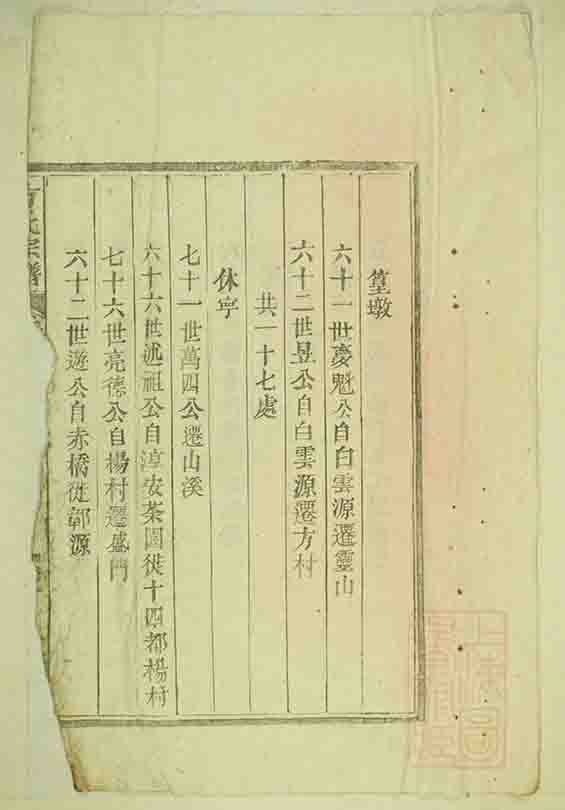 篁墩
六十一世慶魁公自白雲源遷靈山
六十二世昱公自白雲源遷方村
共一十七處
休寧
七十一世萬四公遷山溪
六十六世述祖公自淳安茶園徙十四都楊村
七十六世亮德公自楊村遷盛門
六十二世遊公自赤橋徙鄣源
方氏宗譜